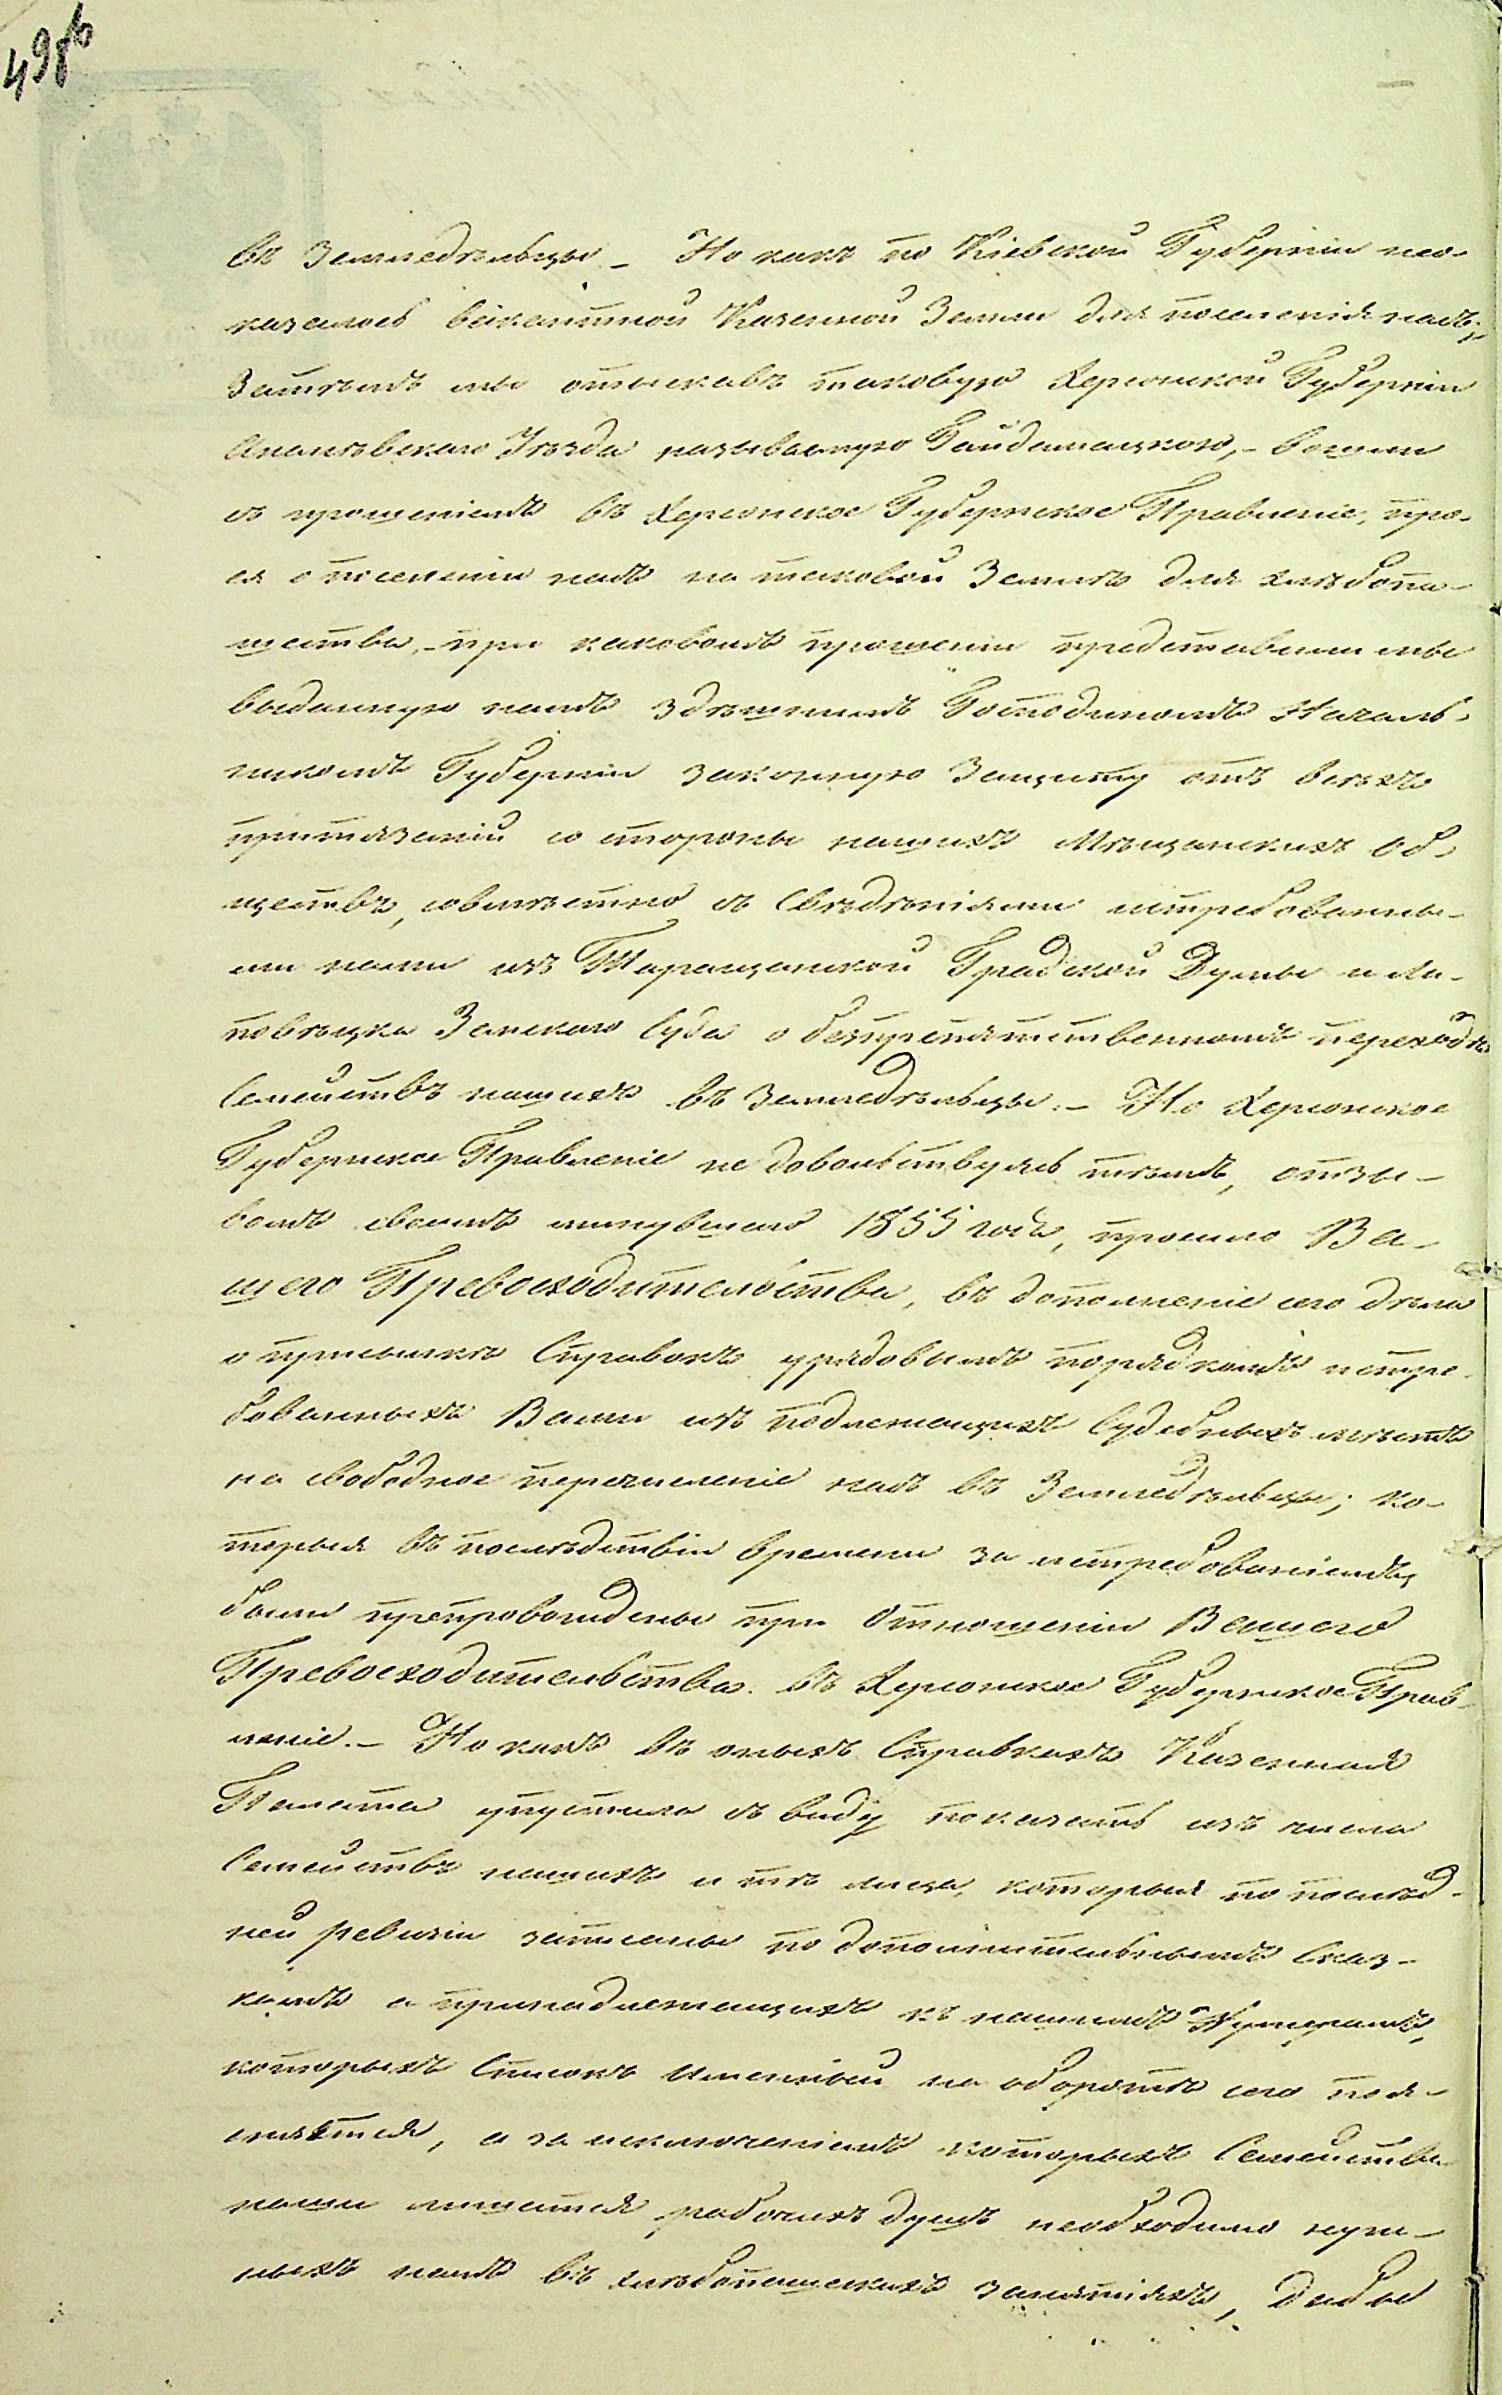 498б
въ Земледѣльцы. – Но какъ по Кіевской Губерніи нео-
казалось вакантной Казенной Земли для поселенія насъ;
Затѣмъ мы отыскавъ таковую Херсонской Губерніи
Ананьевскаго Уѣзда называемую Гайдамацкою, – вошли
съ прошеніемъ въ Херсонское Губернское Правленіе, про-
ся о поселеніи насъ на таковой Землѣ для хлѣбопа-
шества, – при каковомъ прошеніи представили мы
выданную намъ здѣшнимъ Господиномъ Началь-
никомъ Губерніи законную Защиту отъ всѣхъ
притязаній со стороны нашихъ Мѣщанскихъ об-
ществъ, совмѣстно съ Свѣдѣніями истребованны-
ми нами изъ Таращанской Градской Думы и Ли-
повѣцка Земскаго Суда о безпрепятственномъ переходѣ
Семействъ нашихъ въ Земледѣльцы. – Но Херсонское
Губернское Правленіе не довольствуясь тѣмъ, отзы-
вомъ своимъ минувшаго 1855 года, просило Ва-
шего Превосходительства, въ дополненіе сего дѣла
о присылкѣ Справокъ урядовымъ порядкомъ истре-
бованныхъ Вами изъ подлежащихъ Судебныхъ мѣстъ
на свободное перечисленіе насъ въ Земледѣльцы; ко-
торыя въ послѣдствіи времени за истребованіемъ,
были препровождены при Отношеніи Вашего
Превосходительства въ Херсонское Губернское Прав-
леніе. – Но какъ въ оныхъ Справкахъ Казенная
Палата упустила съ виду показать изъ числа
Семействъ нашихъ и тѣ лица, которыя по послѣд-
ней ревизіи записаны по дополнительнымъ Сказ-
камъ а принадлежащихъ къ нашимъ Нумерамъ,
которыхъ Списокъ Именный на оборотѣ сего поя-
снятся, а за исключеніемъ которыхъ Семейства
наши лишатся рабочихъ душъ необходимо нуж-
ныхъ намъ въ хлѣбопашескихъ занятіяхъ, дабы